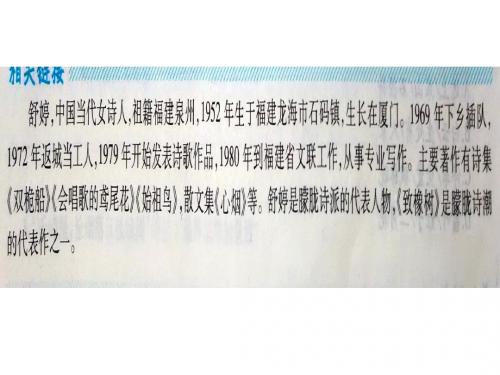 相关链接
舒婷,中国当代女诗人,祖籍福建泉州,1952年生于福建龙海市石码镇,生长在厦门。1969年下乡插队,
1972年返城当工人,1979年开始发表诗歌作品,1980年到福建省文联工作,从事专业写作。主要著作有诗集
《双桅船》《会唱歌的鸢尾花》《始祖鸟》,散文集《心烟》等。舒婷是朦胧诗派的代表人物,《致橡树》是朦胧诗潮
的代表作之一。